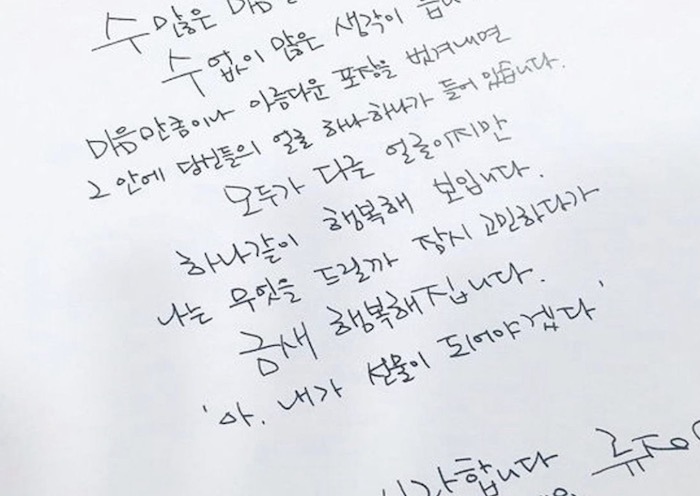 수많은 마음
수없이 많은 생각이
마음만큼이나 아름다운 포장을 벗겨내면
그 안에 당신들의 얼굴 하나하나가 들어 있습니다.
모두가 다른 얼굴이지만
하나같이 행복해 보입니다.
나는 무엇을 드릴까 잠시 고민하다가
금새 행복해집니다.
'아. 내가 선물이 되어야겠다'
합니다 류